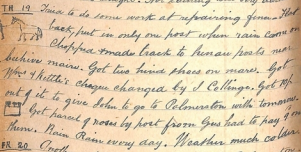 TH 19 to do some work at repairing fence.
back, put in only one post when rain came on
Chopped & made track to human posts near
behive maire. Got two hind shoes on mare. Got
Mrs Kettle's cheque changed by J Collinge. Got
out of it to give John to go to Palmerston with tomorrow.
Got parcel of roses by post from Gus had to pay 9 on
them. Rain Rain every day. Weather much colder
FR 20